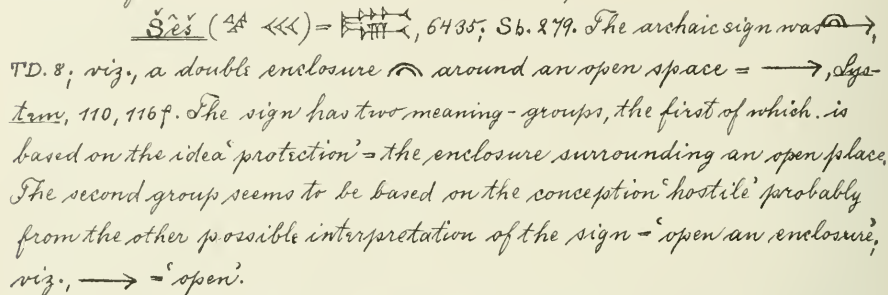 Šêš (𒊺 𒌍) = , 6435; Sb. 279. The archaic sign was ⟶,
TD. 8; viz., a double enclosure around an open space = ⟶, Sys-
tem, 110, 116f. The sign has two meaning-groups, the first of which is
based on the idea ‘protection’ = the enclosure surrounding an open place.
The second group seems to be based on the conception ‘hostile’ probably
from the other possible interpretation of the sign = ‘open an enclosure’;
viz., ⟶ = ‘open’.